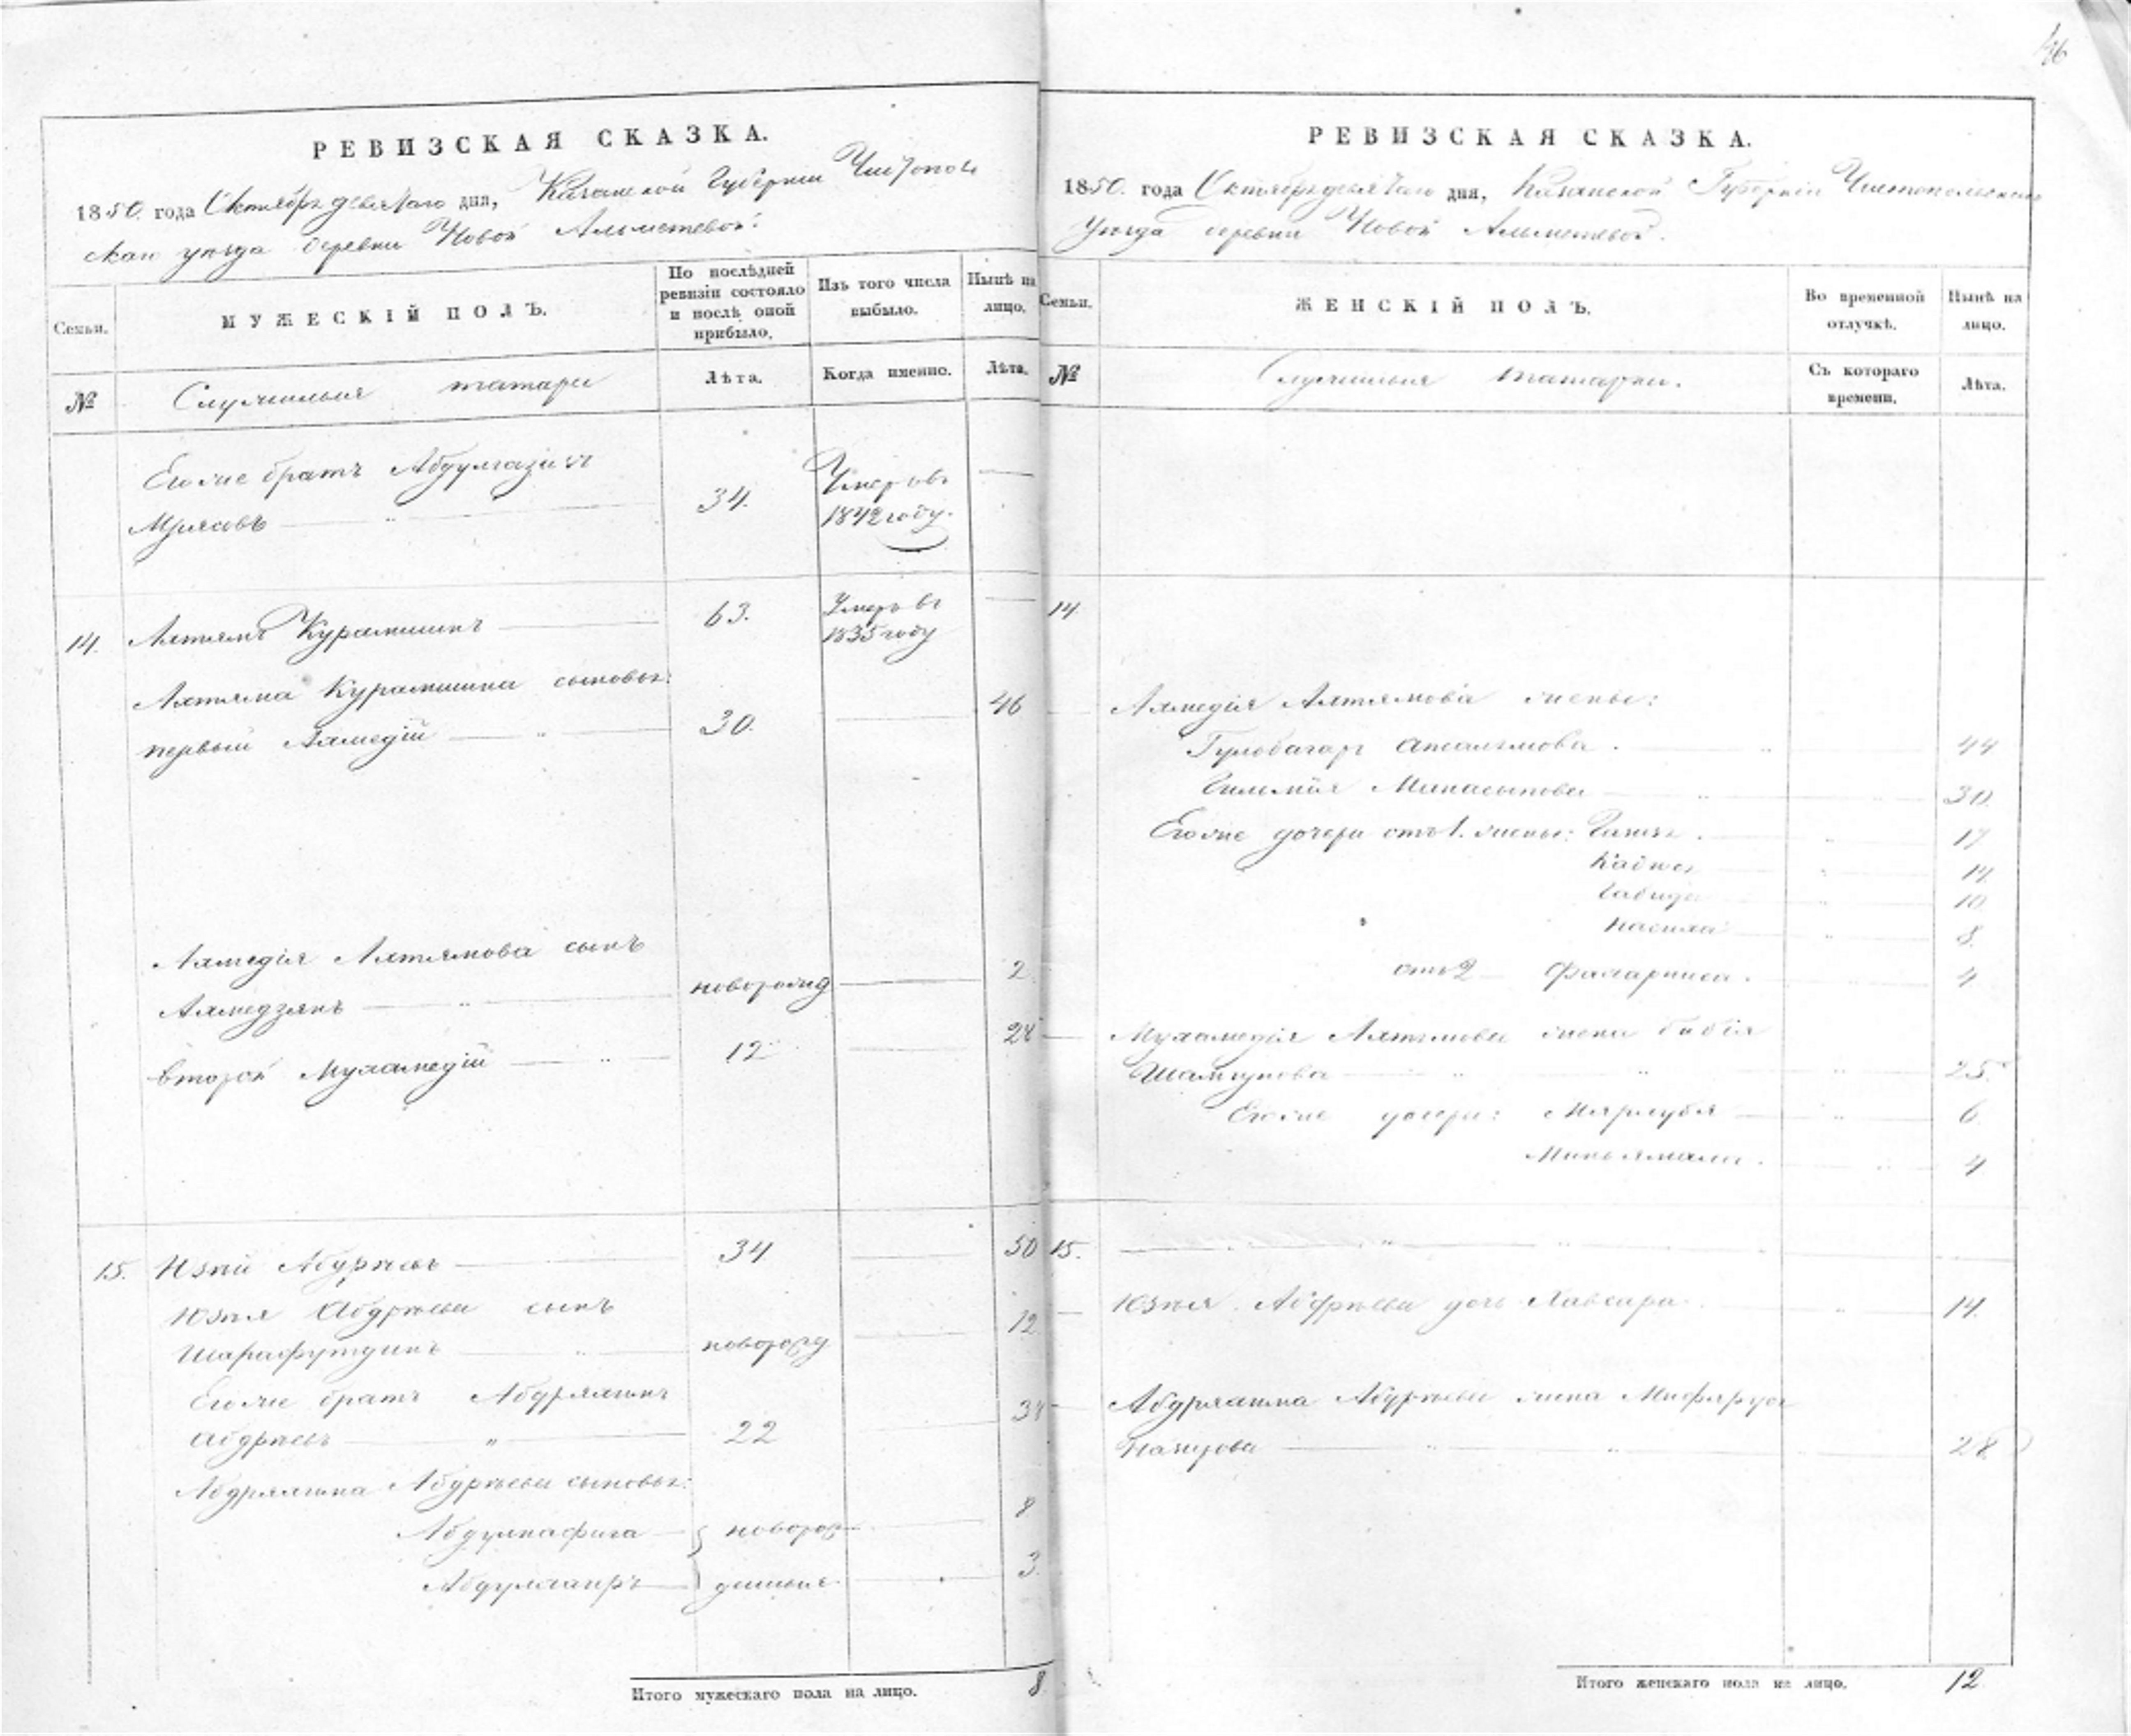 46
РЕВИЗСКАЯ СКАЗКА.
1850. года Октября девятаго дня, Казанской Губернии Чистополь
скаго уезда деревни Новой Альметевой:
Семьи.
МУЖЕСКІЙ ПОЛЪ.
По послѣдней ревизіи состояло и послѣ оной прибыло.
Изъ того числа выбыло.
Нынѣ на лицо.
№
Служилыя татары
Лѣта.
Когда именно.
Лѣта.
Егоже братъ Абдулгазизъ
34.
Умеръ въ
1842 году.
14. Ахтямъ Курамшинъ 63. Умеръ въ
1835 году
Ахтяма Курамшина сыновья:
первый Ахмедій 30. 46
Ахмедія Ахтямова сынъ
Ахмедзянъ новорожд 2
второй Мухамедій 12 28
15. Юзей Абдреевъ 34 50
Юзея Абдреева сынъ
Шарафутдинъ новорожд 12
Егоже братъ Абдрахманъ
Абдреевъ 22 38
Абдрахмана Абдреева сыновья:
Абдулнафига новорож 8
Абдулхаиръ денныя 3
Итого мужескаго пола на лицо. 8
РЕВИЗСКАЯ СКАЗКА.
1850. года Октября девятаго дня, Казанской Губерніи Чистопольскаго
Уезда деревни Новой Альметевой.
Семьи.
ЖЕНСКІЙ ПОЛЪ.
Во временной отлучкѣ.
Нынѣ на лицо.
№
Служилыя татарки.
Съ котораго времени.
Лѣта.
14.
Ахмедія Ахтямова жены:
44
30.
Егоже дочери отъ 1. жены: 17
14.
Габида 10
8.
отъ 2 4
Мухамедія Ахтямова жена Бибія
25.
Егоже дочери: 6
Миньямала. 4
15.
Юзея Абдреева дочь 14.
Абдрахмана Абдреева жена
28.
Итого женскаго пола на лицо. 12